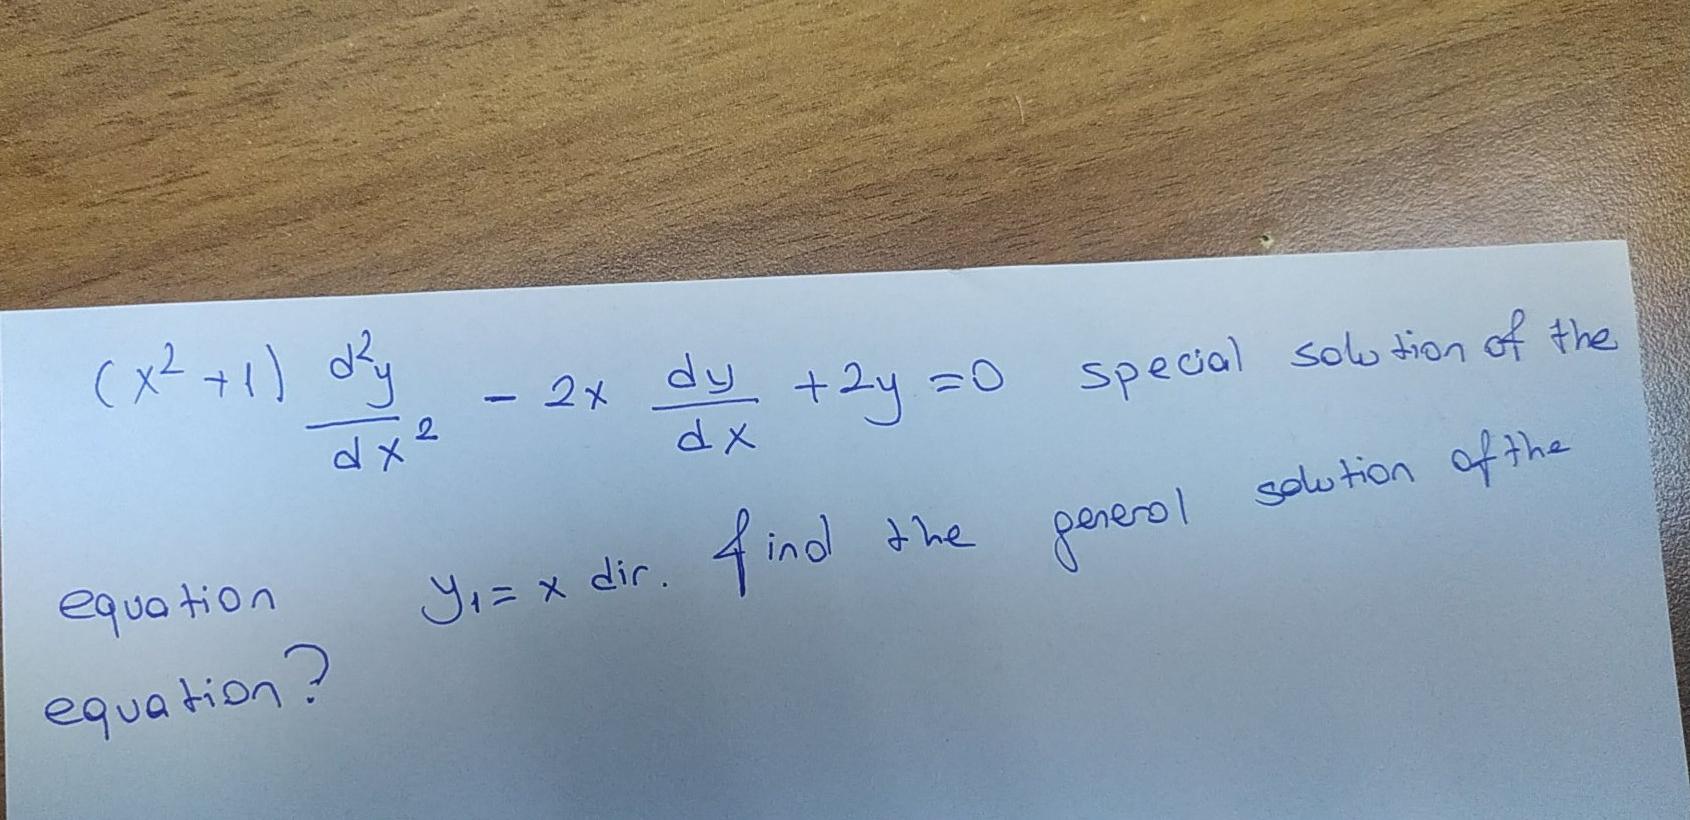 (x² + 1) d²y/dx² - 2x dy/dx + 2y = 0 special solution of the
equation y₁ = x dir. find the general solution of the
equation?